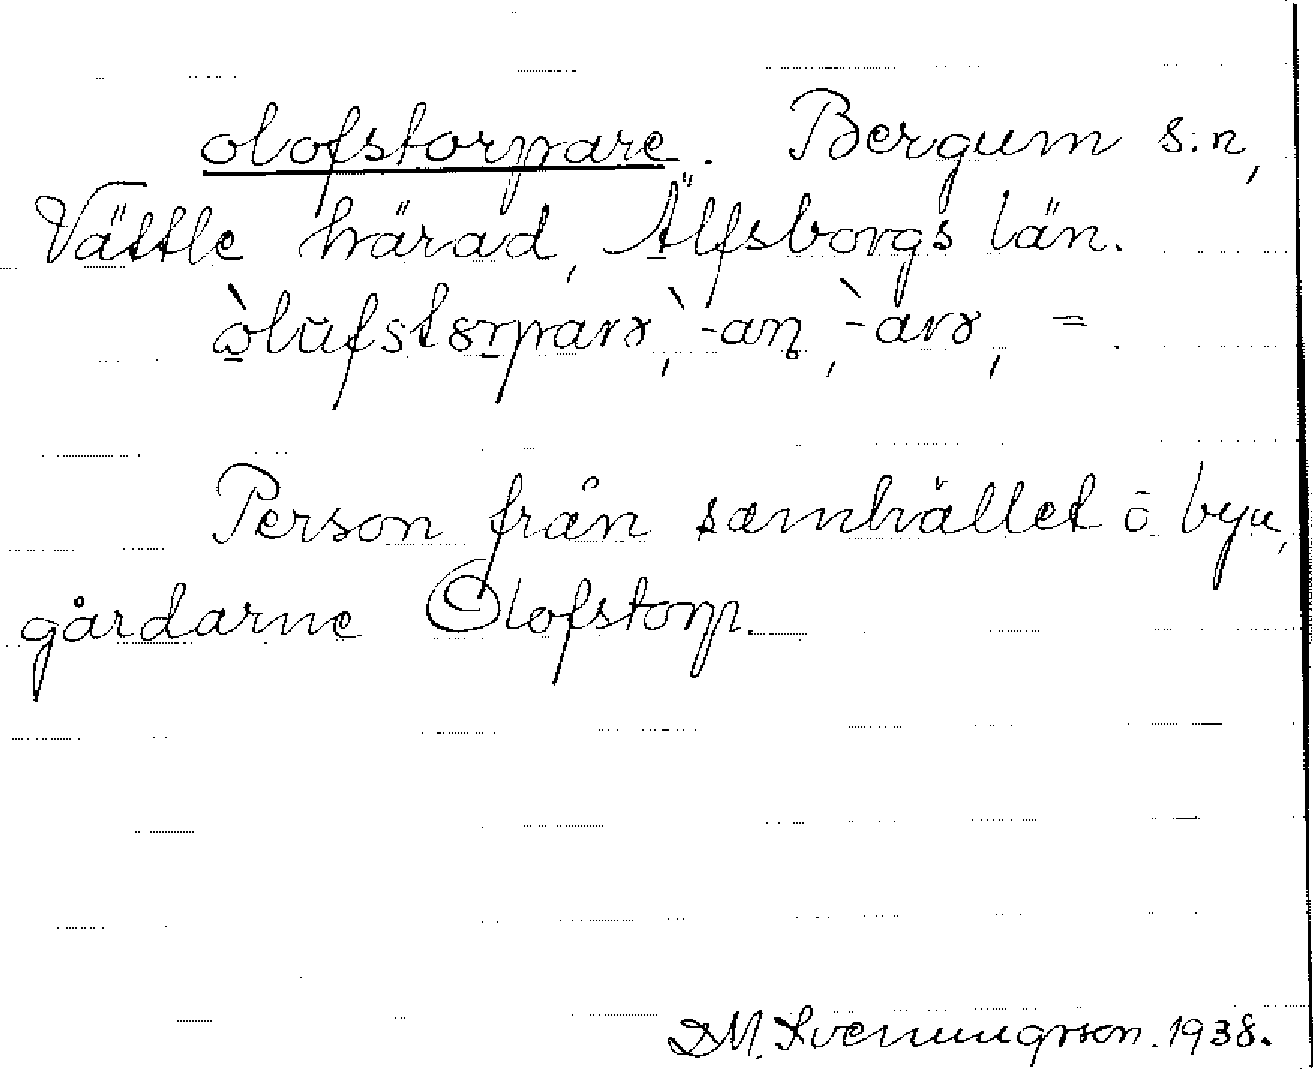 olofstorpare. Bergum s:n,
Vättle härad, Älfsborgs län.
-an, -arə, =.
Person från samhället o byn,
gårdarne Olofstorp.
D.M. Svenungsson. 1938.